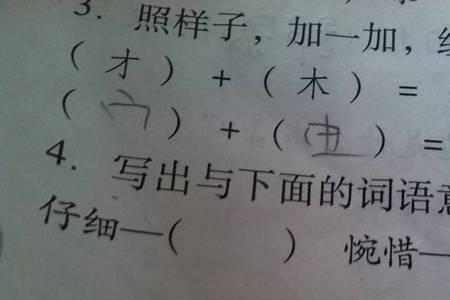 3. 照样子，加一加，
( 才 ) + ( 木 ) =
( 宀 ) + ( 由 ) =
4. 写出与下面的词语意
仔细—( ) 惋惜—